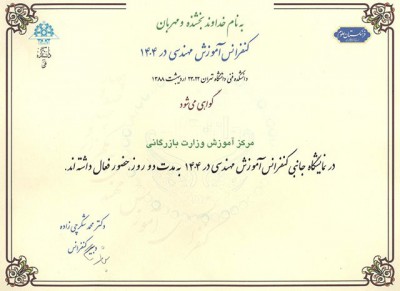 به نام خداوند بخشنده و مهربان
کنفرانس آموزش مهندسی در ۱۴۰۴
دانشکده فنی دانشگاه تهران ۲۲،۲۳ اردیبهشت ۱۳۸۸
گواهی می‌شود
مرکز آموزش وزارت بازرگانی
در نمایشگاه جانبی کنفرانس آموزش مهندسی در ۱۴۰۴ به مدت دو روز، حضور فعال داشته اند.
دکتر محمد شکرچی زاده
دبیر کنفرانس